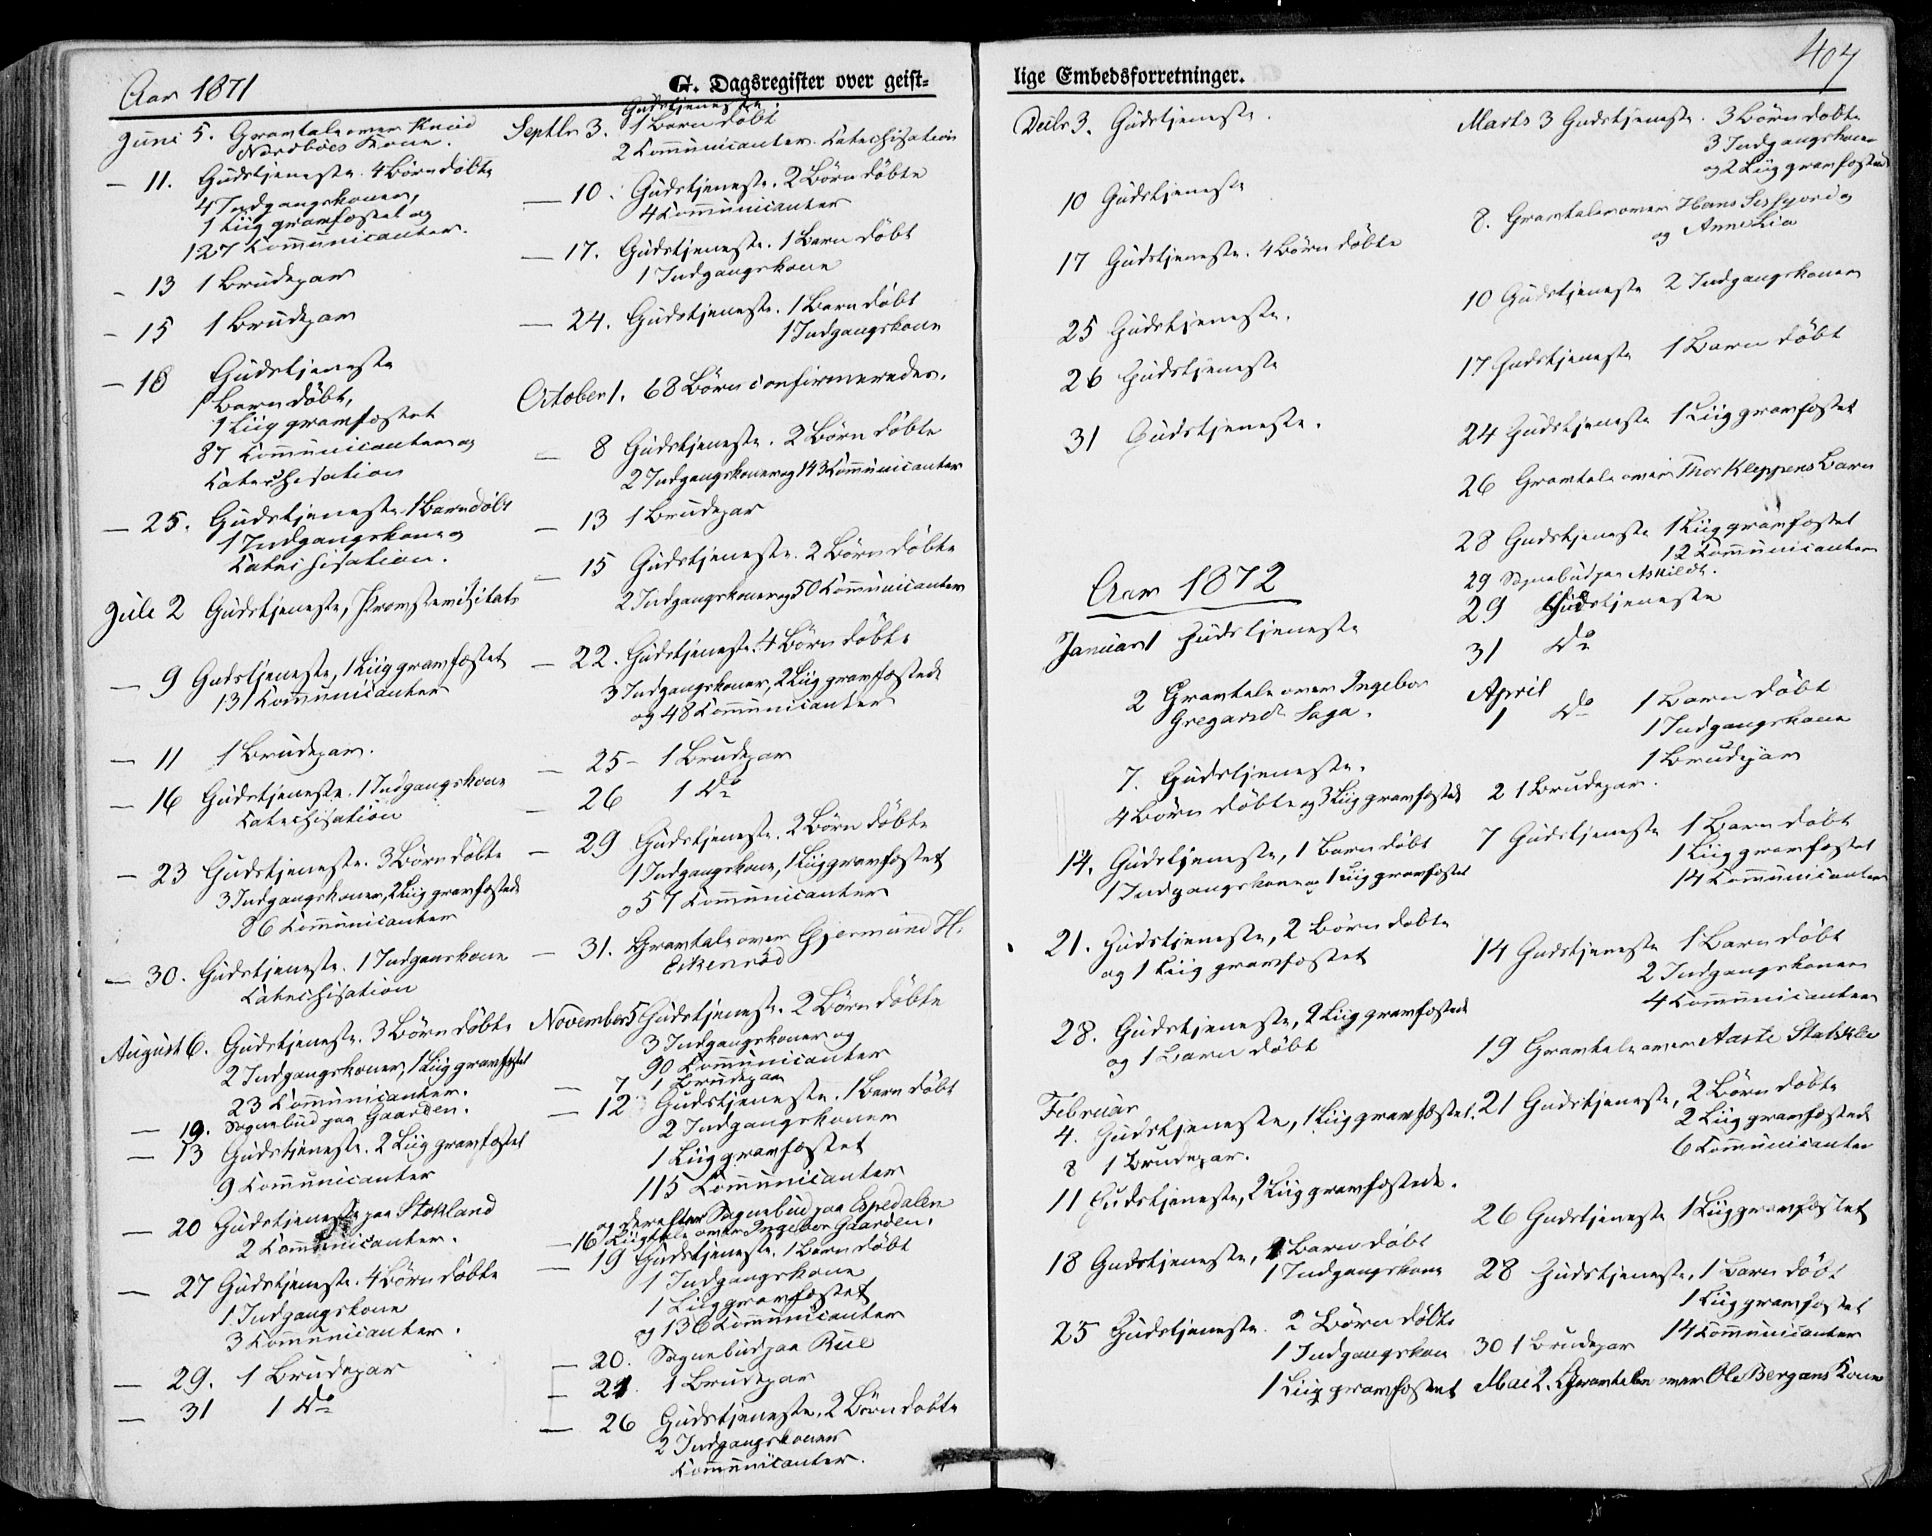 Aar 1871
G. Dagsregister over geist-
Juni 5. Gravtale over Knud
Nordbøes Kone.
— 11. Gudstjeneste. 4 Børn døbte
4 Indgangskoner,
1 Liig gravfæstet og
127 Communicanter.
- 13 1 Brudepar
- 15 1 Brudepar
- 18 Gudstjeneste
1 Barn døbt,
1 Liig gravfæstet
87 Communicanter og
Catechisation
— 25. Gudstjeneste 1 Barn døbt
1 Indgangskone og
Catechisation.
Juli 2 Gudstjeneste, Provstevisitats
— 9 Gudstjeneste, 1 Liig gravfæstet
131 Communicanter
— 11 1 Brudepar.
— 16 Gudstjeneste. 1 Indgangskone
Catechisation
— 23 Gudstjeneste. 3 Børn døbte
3 Indgangskoner, 2 Liig gravfæstede
86 Communicanter
— 30. Gudstjeneste. 1 Indganskone
Catechisation
August 6. Gudstjeneste. 3 Børn døbte
2 Indgangskoner, 1 Liig gravfæstet
23 Communicanter.
— 10. Sognebud paa Gaarden.
— 13 Gudstjeneste. 2 Liig gravfæstet
9 Communicanter
— 20 Gudstjeneste paa Stokland
2 Communicanter.
— 27 Gudstjeneste. 4 Børn døbte
1 Indgangskone
3 Communicanter.
— 29. 1 Brudepar
— 31 1 Do
Septbr 3. Gudstjeneste.
1 Barn døbt
2 Communicanter. Catechisation
— 10. Gudstjeneste. 2 Børn døbte
4 Communicanter
— 17. Gudstjeneste. 1 Barn døbt
1 Indgangskone
— 24. Gudstjeneste. 1 Barn døbt
1 Indgangskone
October 1. 68 Børn confirmeredes.
— 8 Gudstjeneste. 2 Børn døbte
2 Indgangskoner og 143 Communicanter
— 13 1 Brudepar
— 15 Gudstjeneste. 2 Børn døbte
2 Indgangskoner og 50 Communicanter
— 22. Gudstjeneste. 4 Børn døbte
3 Indgangskoner, 2 Liig gravfæstede
og 48 Communicanter
— 25 - 1 Brudepar
— 26 1 Do
— 29 Gudstjeneste. 2 Børn døbte
1 Indgangskone, 1 Liig gravfæstet
og 57 Communicanter
— 31. Gravtale over Gjermund H.
Eikenrød
November 5 Gudstjeneste. 2 Børn døbte
3 Indgangskoner og
90 Communicanter
— 7 1 Brudepar
— 12 Gudstjeneste. 1 Barn døbt
2 Indgangskoner
1 Liig gravfæstet
115 Communicanter
og derefter Sognebud paa Espedalen
— 16 Liigtale over Ingebor Gaarden.
— 19 Gudstjeneste. 1 Barn døbt
1 Indgangskone
1 Liig gravfæstet
og 136 Communicanter
— 20. Sognebud paa Rue
— 21. 1 Brudepar
— 26 Gudstjeneste. 2 Børn døbte
2 Indgangskoner
Communicanter.
lige Embedsforretninger.
407
Decbr 3. Gudstjeneste.
10 Gudstjeneste
17 Gudstjeneste. 4 Børn døbte
25 Gudstjeneste.
26 Gudstjeneste
31 Gudstjeneste.
Aar 1872
Januar 1 Gudstjeneste
2 Gravtale over Ingebor
Gregarsdr Saga.
7. Gudstjeneste.
4 Børn døbte og 3 Liig gravfæstede
14. Gudstjeneste, 1 Barn døbt
1 Indgangskone og 1 Liig gravfæstet
21. Gudstjeneste, 2 Børn døbte
og 1 Liig gravfæstet
28. Gudstjeneste, 2 Liig gravfæstede
og 1 Barn døbt
Februar
4. Gudstjeneste, 1 Liig gravfæstet.
8 1 Brudepar.
11 Gudstjeneste, 2 Liig gravfæstede.
18 Gudstjeneste, 1 Barn døbt
1 Indgangskone
25 Gudstjeneste. 2 Børn døbte
1 Indgangskon
1 Liig gravfæstet
Marts 3 Gudstjeneste. 3 Børn døbte
3 Indgangskoner
og 2 Liig gravfæstede
8. Gravtaler over Hans
og Anne Lia
10 Gudstjeneste 2 Indgangskoner
17 Gudstjeneste 1 Barn døbt
24 Gudstjeneste 1 Liig gravfæstet
26 Gravtale over Thor Kleppens Barn
28 Gudstjeneste 1 Liig gravfæstet
12 Communicanter
29 Sognebud paa Askildt.
29 Gudstjeneste
31 Do
April
1 Do 1 Barn døbt
1 Indgangskone
1 Brudepar
2 1 Brudepar.
7 Gudstjeneste 1 Barn døbt
1 Liig gravfæstet
14 Communicanter
14 Gudstjeneste 1 Barn døbt
2 Indgangskoner
4 Communicanter
19 Gravtale over Aaste Stalskle
21 Gudstjeneste, 2 Børn døbte
2 Liig gravfæstede
6 Communicanter
26 Gudstjeneste 1 Liig gravfæstet
28 Gudstjeneste, 1 Barn døbt
1 Liig gravfæstet
14 Communicanter
30 1 Brudepar
Mai 2. Gravtale over Ole Bergans Kone